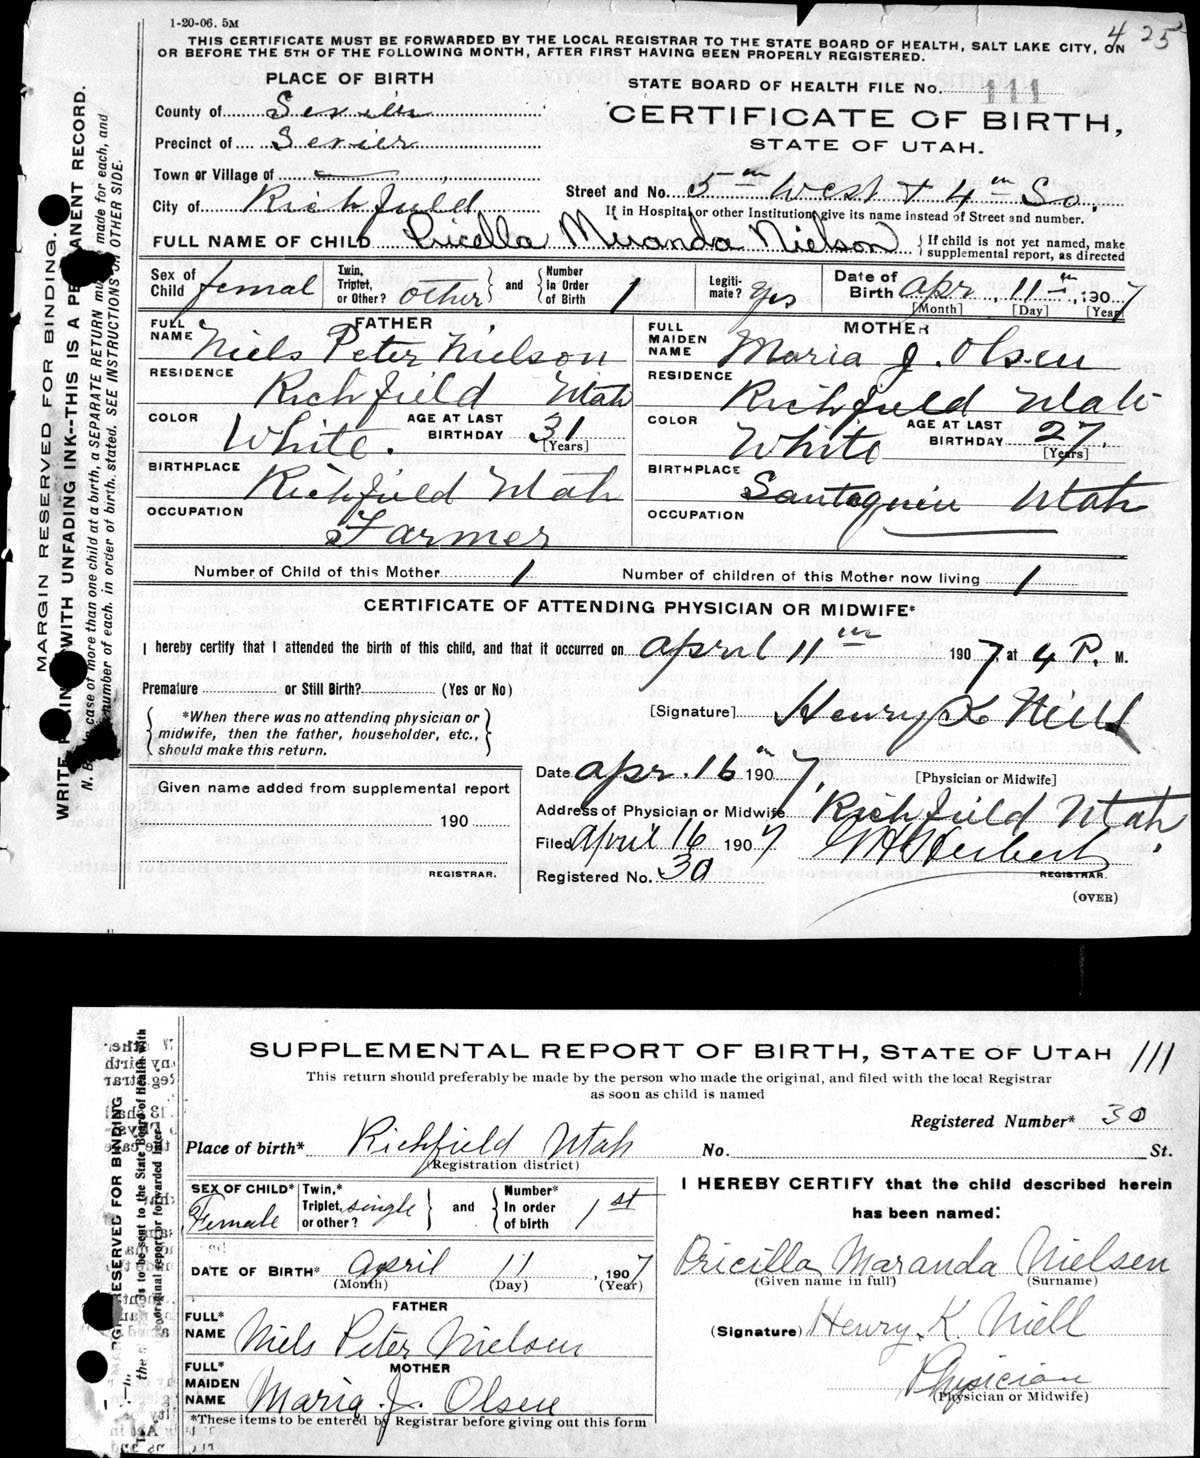 1-20-06. 5M
4 25
THIS CERTIFICATE MUST BE FORWARDED BY THE LOCAL REGISTRAR TO THE STATE BOARD OF HEALTH, SALT LAKE CITY, ON
OR BEFORE THE 5TH OF THE FOLLOWING MONTH, AFTER FIRST HAVING BEEN PROPERLY REGISTERED.
PLACE OF BIRTH
STATE BOARD OF HEALTH FILE No. 111
County of Sevier
CERTIFICATE OF BIRTH,
Precinct of Sevier
STATE OF UTAH.
Town or Village of
City of Richfield
Street and No. 5th West & 4th So.
If in Hospital or other Institution, give its name instead of Street and number.
FULL NAME OF CHILD Pricella Miranda Nielson
If child is not yet named, make
supplemental report, as directed
Sex of Child femal
Twin, Triplet, or Other? other and Number In Order of Birth 1
Legitimate? yes
Date of Birth apr 11th, 1907
[Month] [Day] [Year]
FATHER
FULL NAME Niels Peter Nielson
RESIDENCE Richfield Utah
COLOR White. AGE AT LAST BIRTHDAY 31 [Years]
BIRTHPLACE Richfield Utah
OCCUPATION Farmer
MOTHER
FULL MAIDEN NAME Maria J. Olsen
RESIDENCE Richfield Utah
COLOR White AGE AT LAST BIRTHDAY 27. [Years]
BIRTHPLACE Santaquin Utah
OCCUPATION
Number of Child of this Mother 1 Number of children of this Mother now living 1
CERTIFICATE OF ATTENDING PHYSICIAN OR MIDWIFE*
I hereby certify that I attended the birth of this child, and that it occurred on april 11th 1907, at 4 P. M.
Premature or Still Birth? (Yes or No)
*When there was no attending physician or
midwife, then the father, householder, etc.,
should make this return.
[Signature] Henry K Niell
[Physician or Midwife]
Date apr. 16th 1907.
Address of Physician or Midwife Richfield Utah.
Filed April 16 1907
REGISTRAR.
Registered No. 30
(OVER)
Given name added from supplemental report
190
REGISTRAR.
MARGIN RESERVED FOR BINDING.
SUPPLEMENTAL REPORT OF BIRTH, STATE OF UTAH 111
This return should preferably be made by the person who made the original, and filed with the local Registrar
as soon as child is named
Registered Number* 30
Place of birth* Richfield Utah No. St.
(Registration district)
SEX OF CHILD* Female
Twin,* Triplet, or other? single and Number* In order of birth 1st
DATE OF BIRTH* april 11, 1907
(Month) (Day) (Year)
FATHER
FULL* NAME Niels Peter Nielsen
MOTHER
FULL* MAIDEN NAME Maria J. Olsen
*These items to be entered by Registrar before giving out this form
I HEREBY CERTIFY that the child described herein
has been named:
Pricilla Maranda Nielsen
(Given name in full) (Surname)
(Signature) Henry. K. Niell
Physician
(Physician or Midwife)